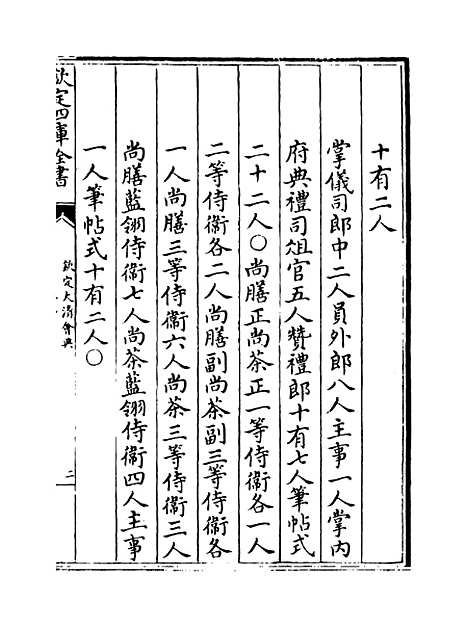 十有二人
掌儀司郎中二人員外郎八人主事一人掌内
府典禮司俎官五人贊禮郎十有七人筆帖式
二十二人〇尚膳正尚茶正一等侍衞各一人
二等侍衞各二人尚膳副尚茶副三等侍衞各
一人尚膳三等侍衞六人尚茶三等侍衞三人
尚膳藍翎侍衞七人尚茶藍翎侍衞四人主事
一人筆帖式十有二人〇
欽定四庫全書
欽定大清會典
二